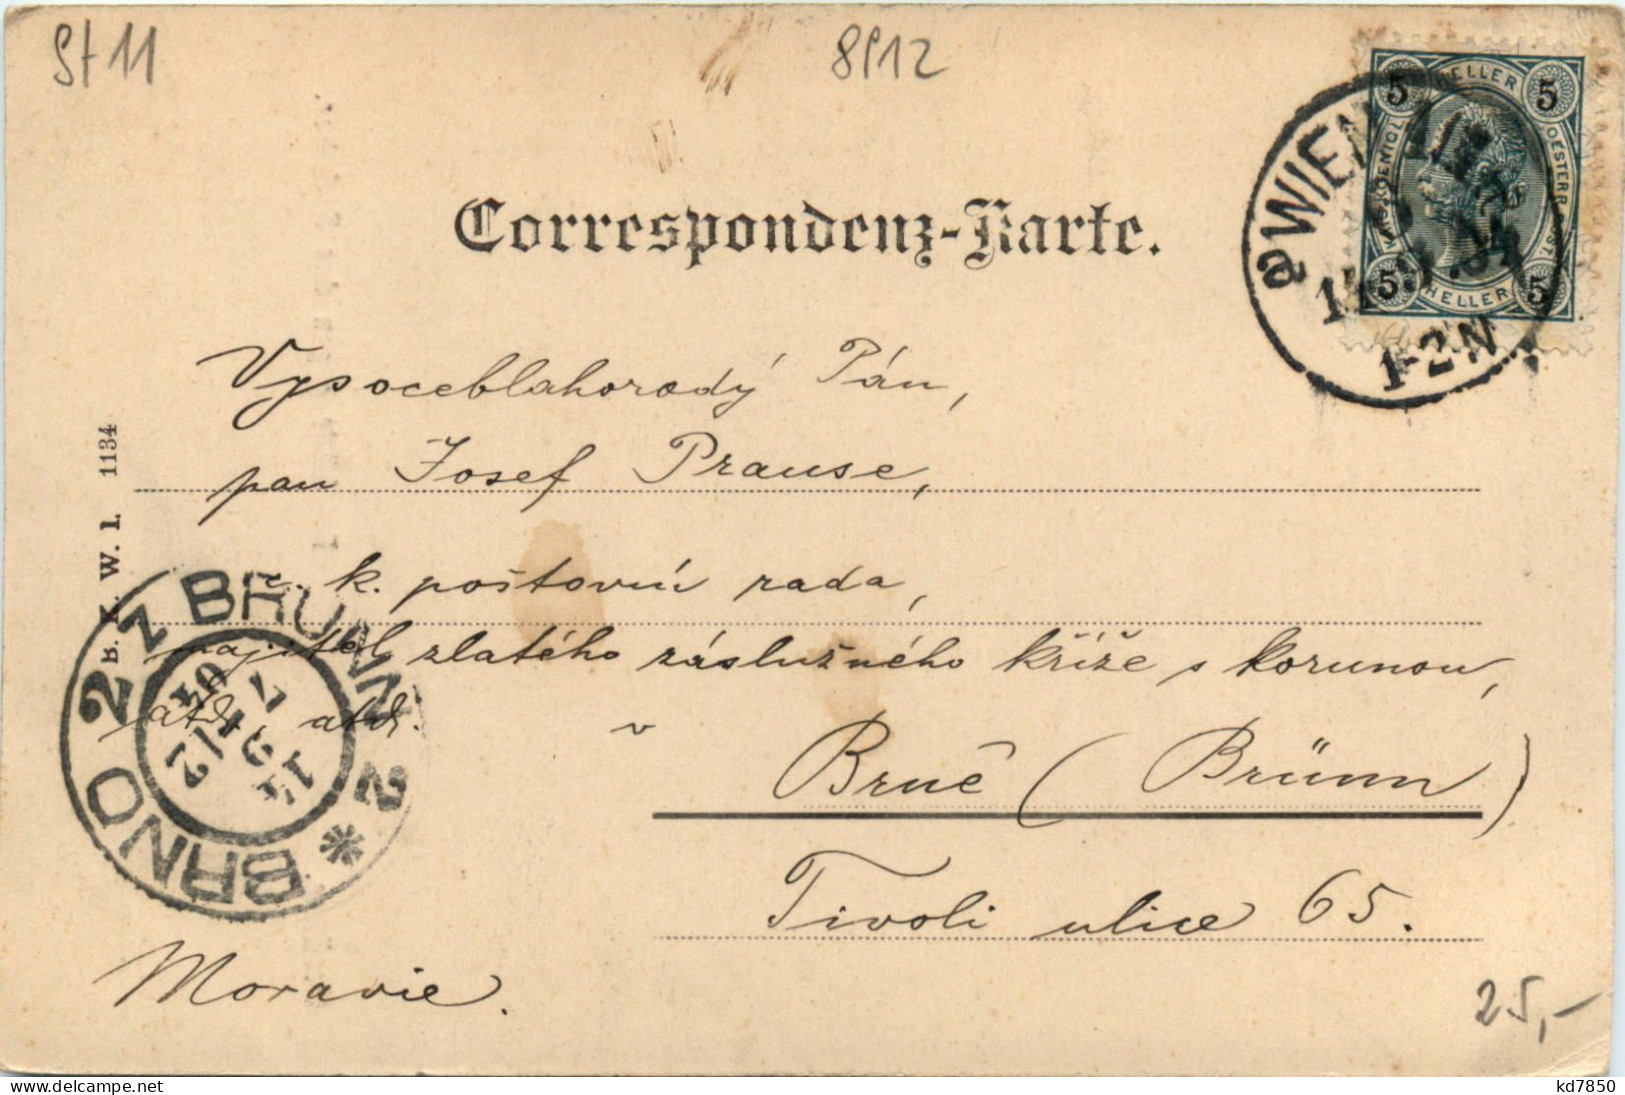 St 11
8912
5 HELLER 5
KAIS. KOENIGL. OESTERR. POST.
5 HELLER 5
WIEN
1-2N
Correspondenz-Karte.
Vysoceblahorodý Pán,
pan Josef Prause,
c. k. poštovní rada,
majitel zlatého záslužného kříže s korunou,
atd. atd. v
Brně (Brünn)
Tivoli ulice 65.
Moravie.
B. K. W. I. 1134
BRNO 2 Z BRÜNN 2
25,-
kd7850